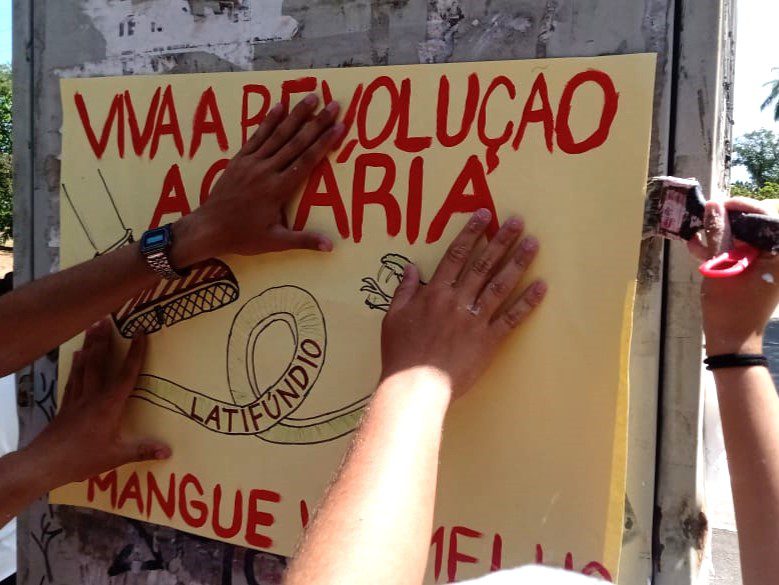 VIVA A REVOLUÇAO
AGRÁRIA
LATIFÚNDIO
MANGUE VERMELHO